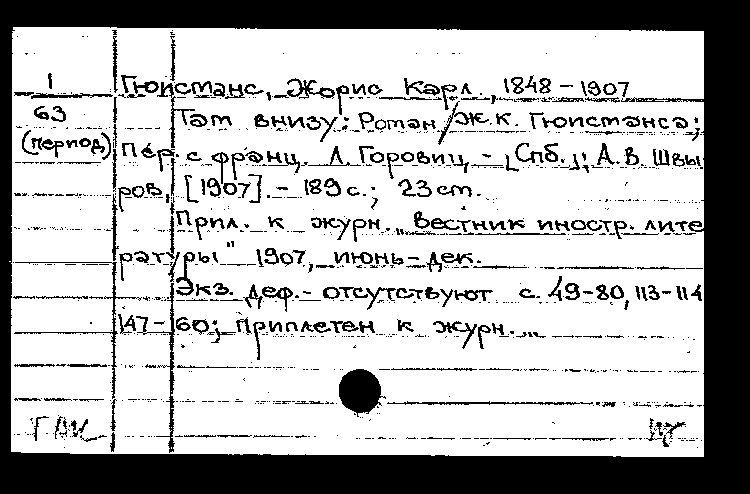 1
63
(период)
Гюисманс, Жорис Карл., 1848-1907
Там внизу: Роман / Ж.К. Гюисманса;
Пер. с франц. Л. Горовиц, - [Спб.]; А.В. Швы
ров, [1907]. - 189 с.; 23 см.
Прил. к журн. „Вестник иностр. лите
ратуры" 1907, июнь-дек.
Экз. деф. - отсутствуют с. 49-80, 113-114
147-60; приплетен к журн. „„